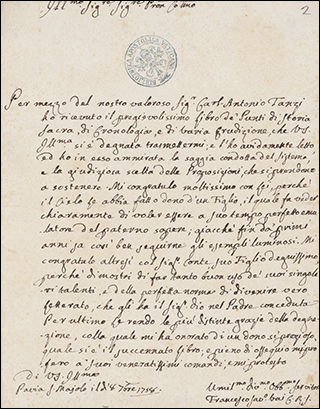 Ill.mo Sig.re Sig.re Pron Colmo
2
Per mezzo del nostro valoroso Sig.r Carl'Antonio Tanzi
hò ricevuto il pregevolissimo Libro de' Punti di Storia
Sacra, di Cronologia, e di varia Erudizione, che VS.
Ill.ma si è degnata trasmettermi: e l'hò avidamente letto
ed hò in esso ammirata la saggia condotta del Sistema,
e la giudiziosa scelta delle Proposizioni, che si prendono
a sostenere. Mi congratulo moltissimo con Lei, perchè
il Cielo le abbia fatto dono d'un Figlio, il quale fa veder
chiaramente di voler essere a suo tempo perfetto emu
latore del paterno sapere; giacchè fin da' primi
anni sa così ben seguirne gli esempli luminosi. Mi
congratulo altresì col Sig.r Conte, suo Figlio degnissimo,
perchè dimostri di far tanto buon uso de' suoi singola
ri talenti, e della perfetta norma di divenire vero
letterato, che gli hà il Sig.r Dio nel Padre conceduta.
Per ultimo Le rendo le più distinte grazie della degna
zione, colla quale mi hà onorato di un dono sì pregevole,
quale si è il succennato Libro; e pieno di ossequio mi prof
fero a' suoi veneratissimi comandi, e mi protesto
Di VS. Ill.ma
Pavia S. Majolo il dì 8 7bre 1754.
Umil.mo
Francesco
C. R. S.